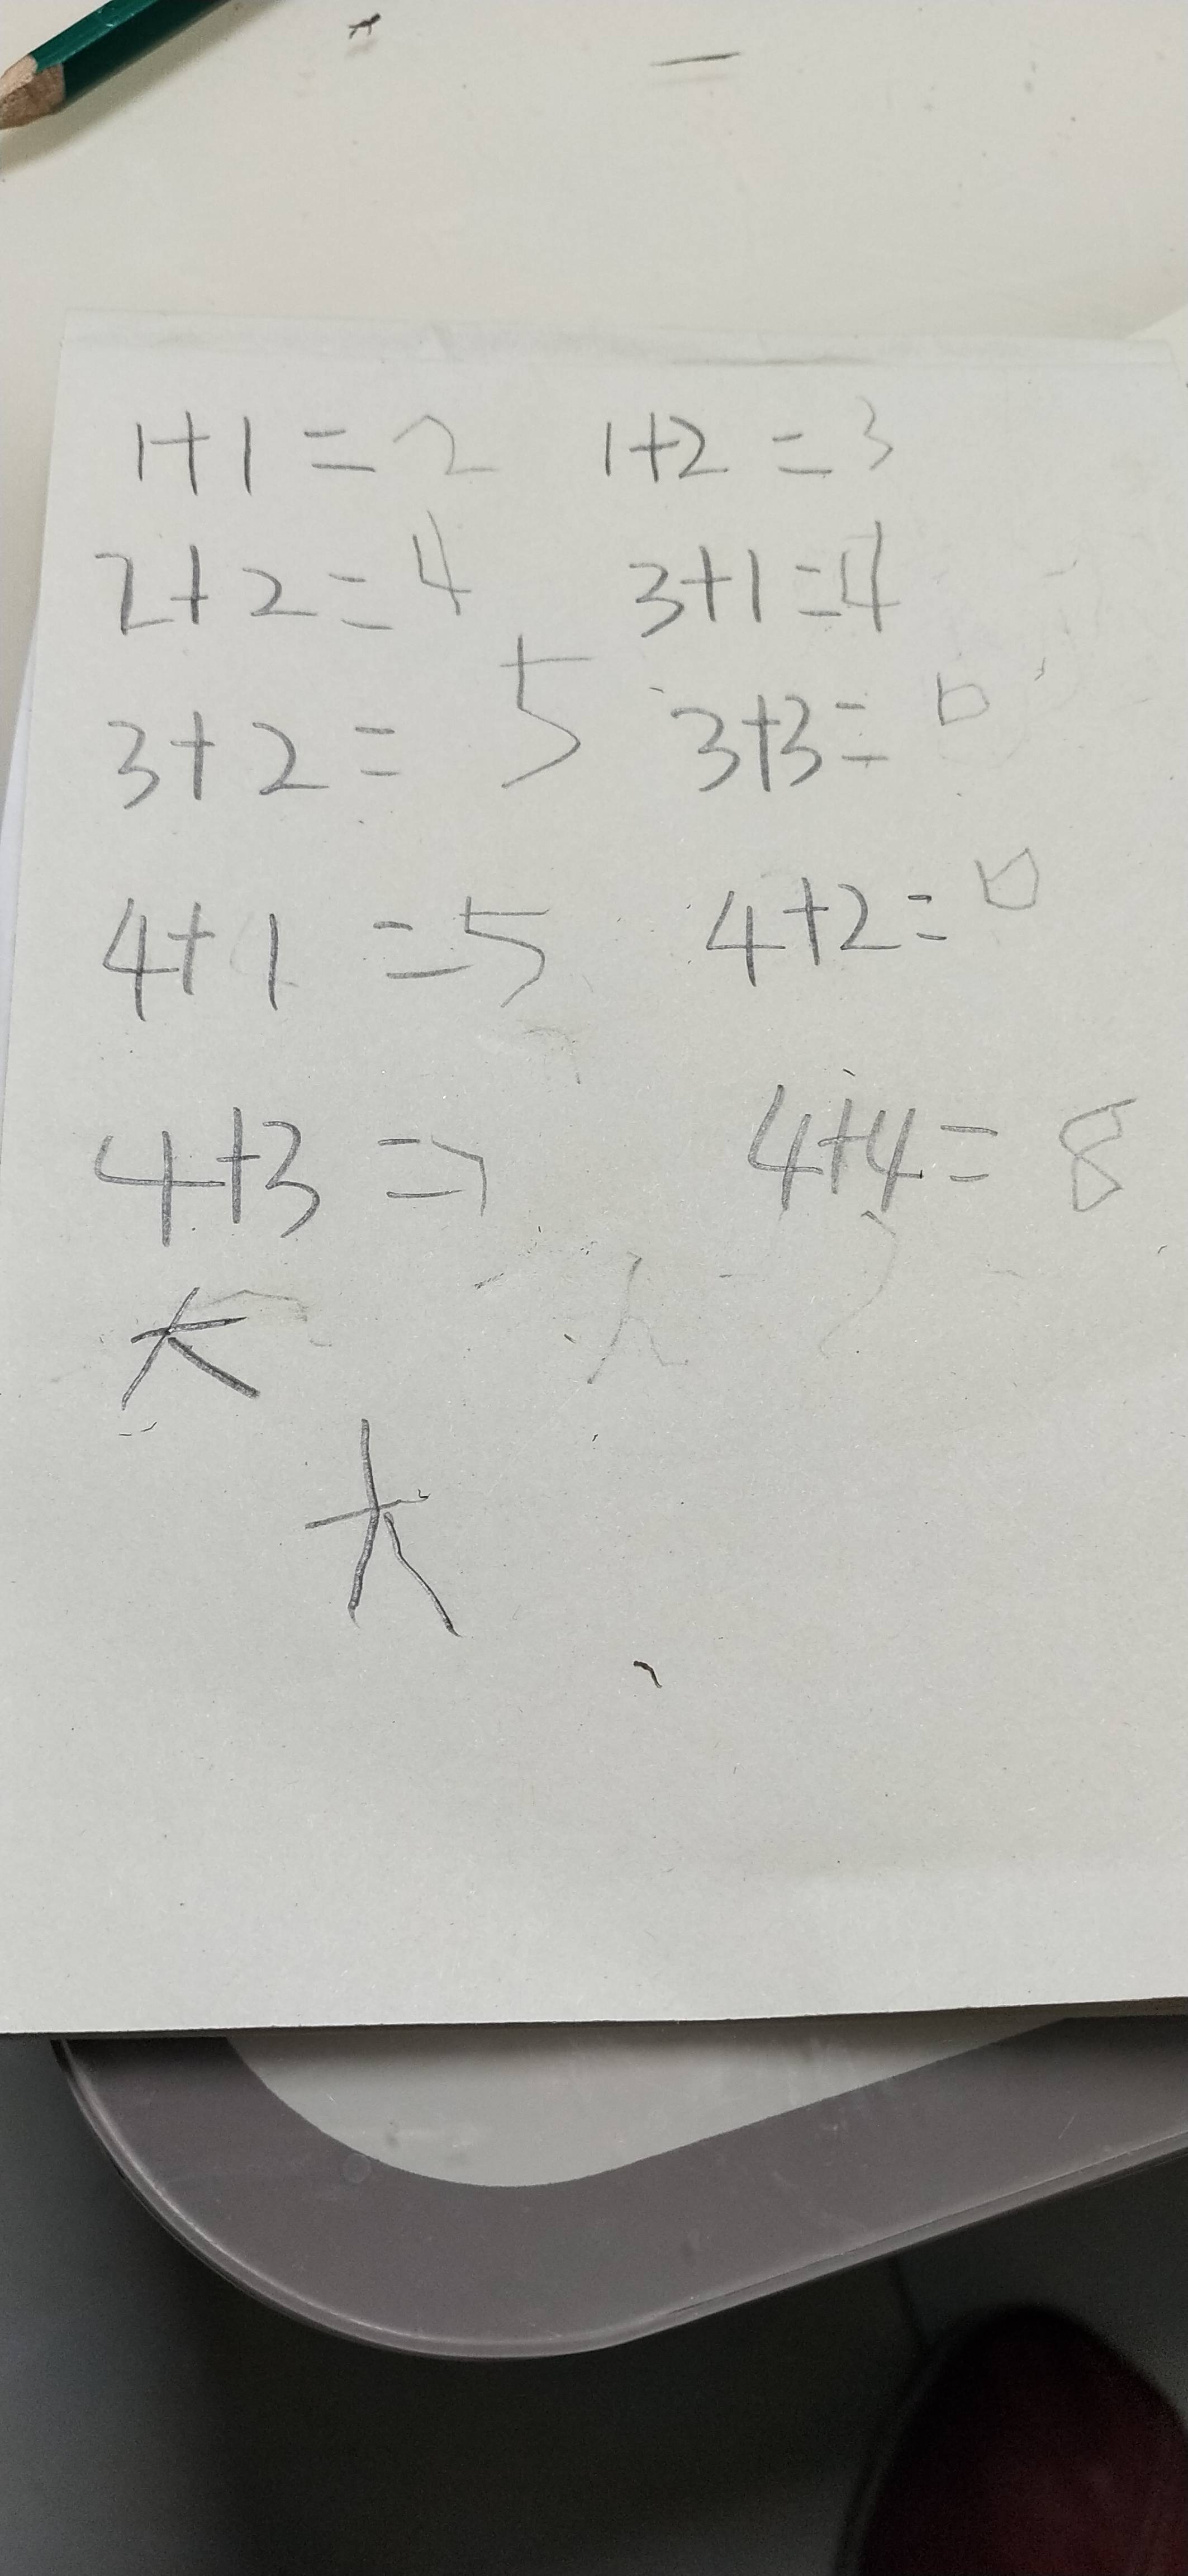 1+1=2 1+2=3
2+2=4 3+1=4
3+2=5 3+3=6
4+1=5 4+2=6
4+3=7 4+4=8
大
大